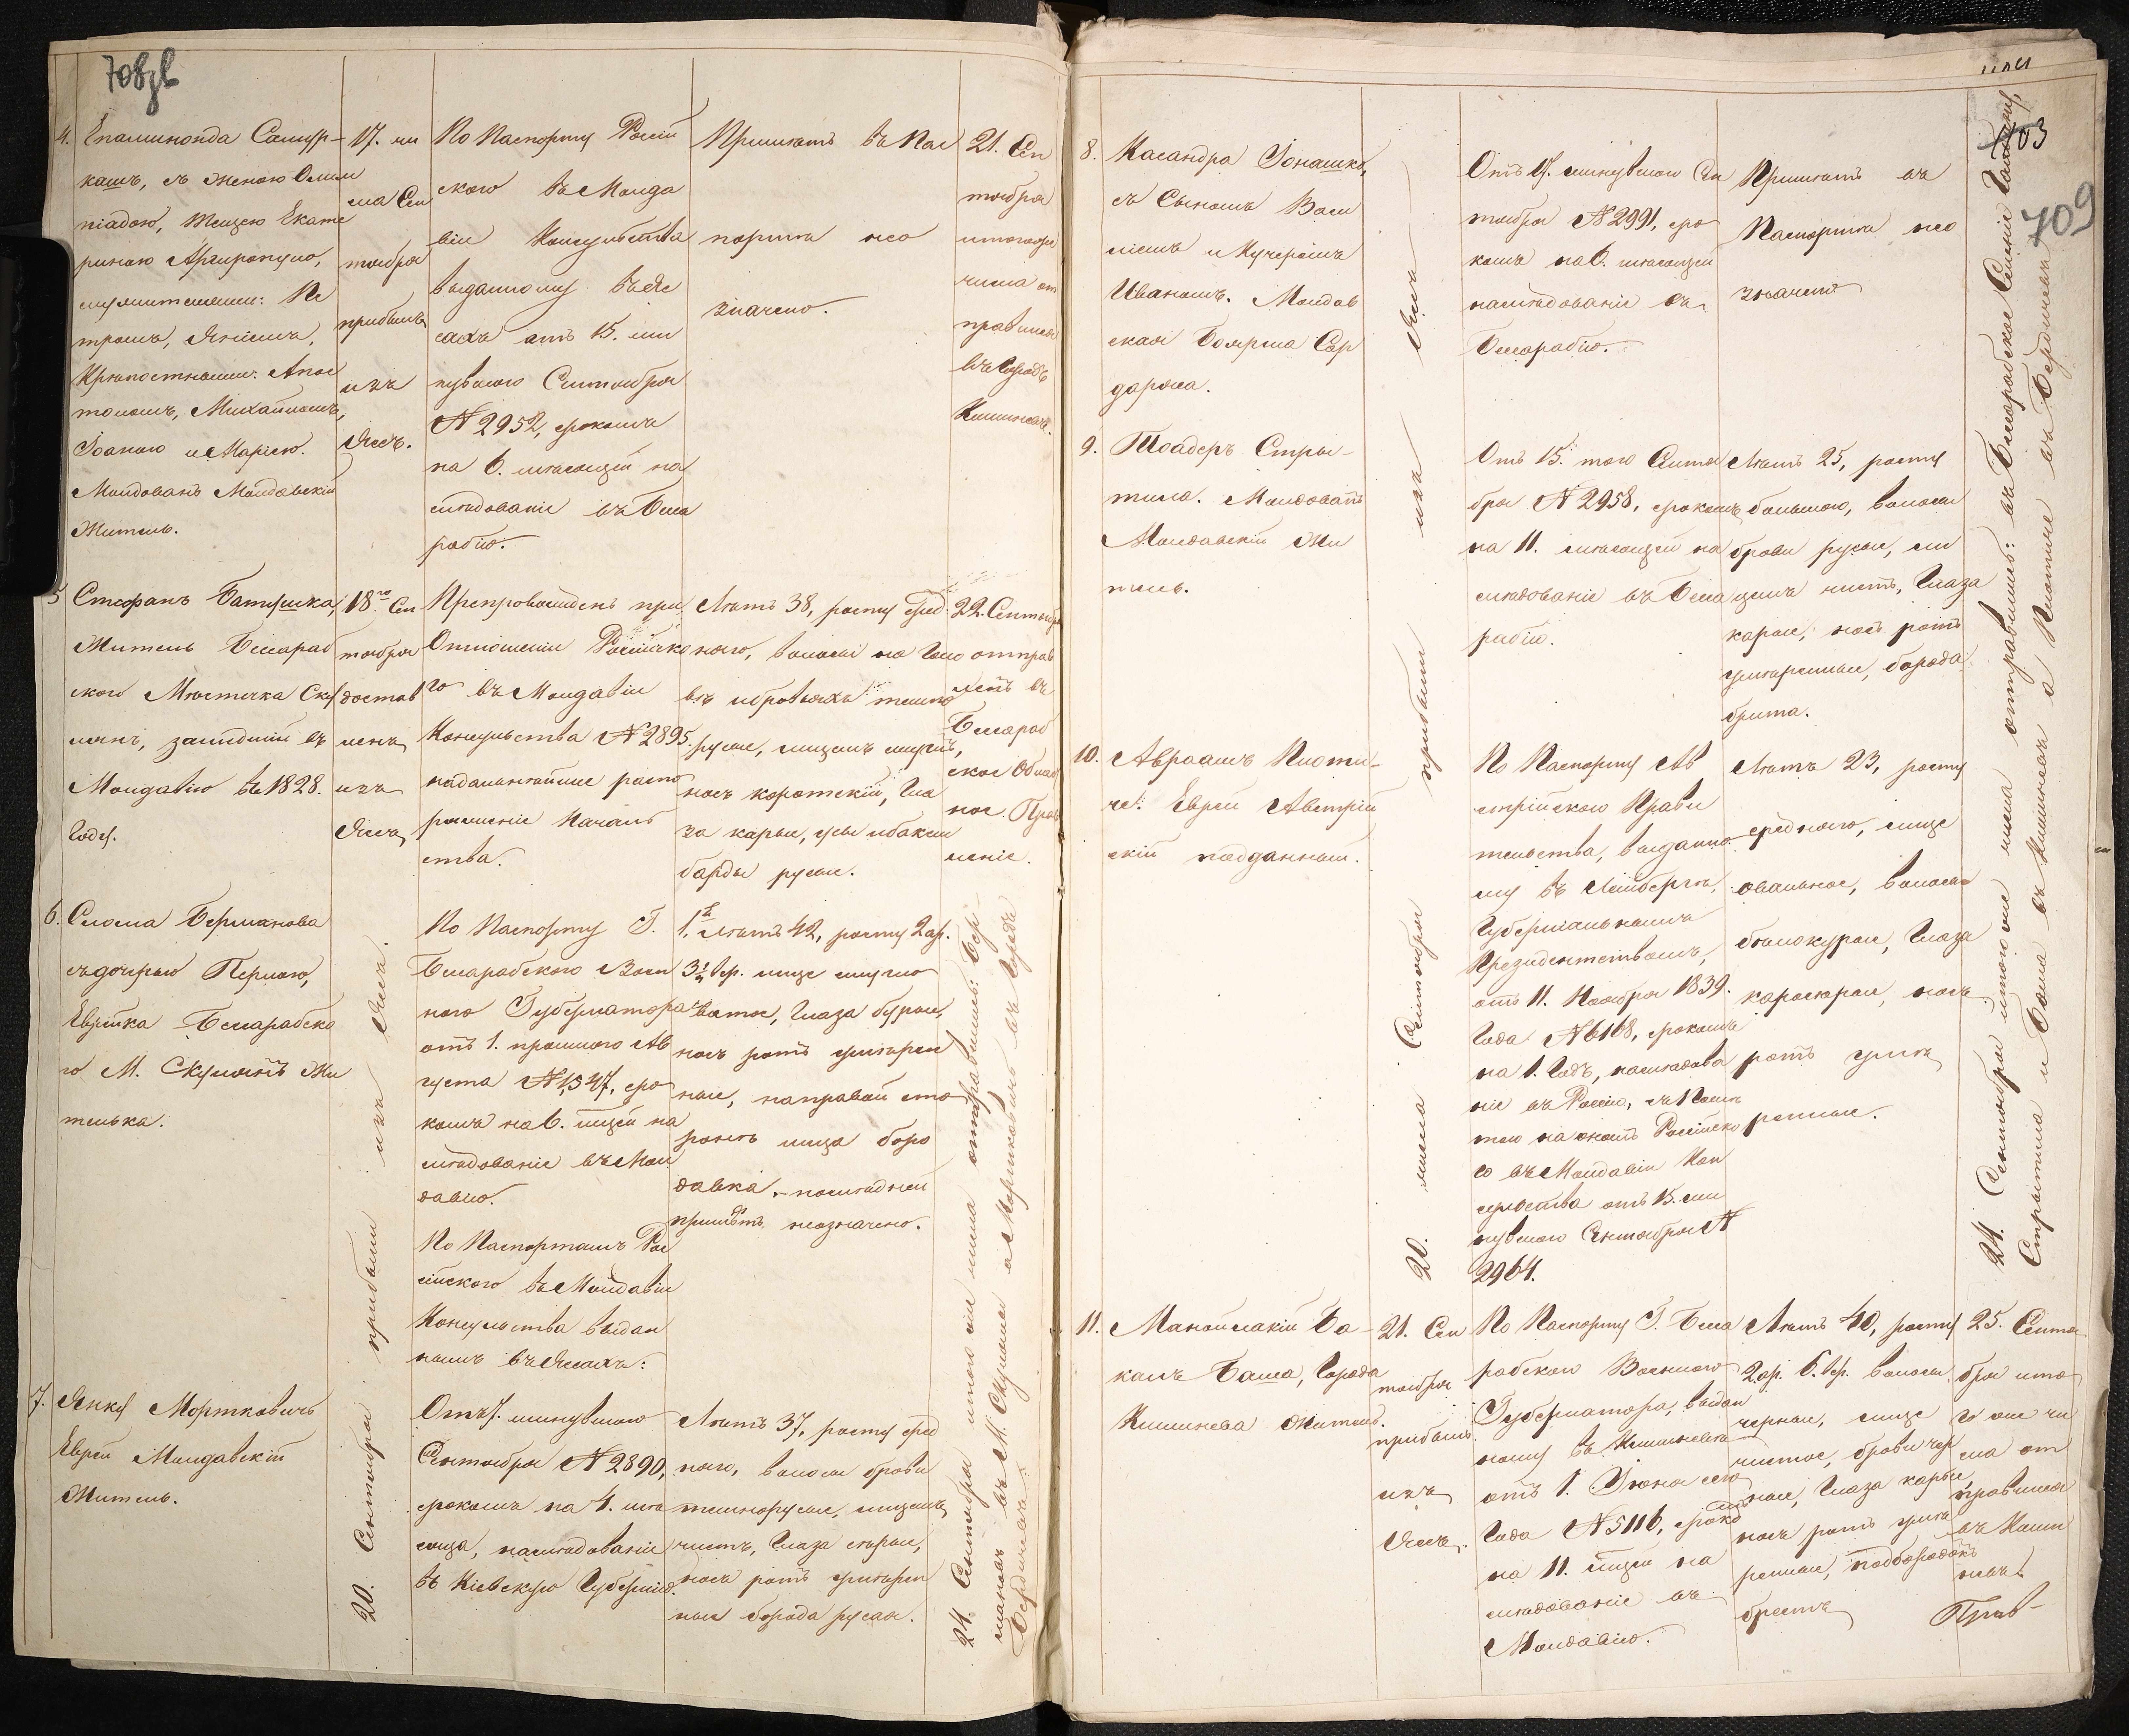 708зв
4. Епаминонда Самур-
кашъ, съ женою Олим
піадою, тещею Екате
риною Аргиропуло,
служителями: Пе
тромъ, Янiемъ,
Крѣпостными: Апос
толомъ, Михайломъ,
Іоаною и Маріею.
Молдованъ Молдавскій
Житель.
17. чи
сла Сен
тября
прибылъ
изъ
Яссъ.
По Паспорту Россій
скаго въ Молда
віи Консульства
выданному въ Яс
сахъ отъ 15. ми
нувшаго Сентября
№ 2952, срокомъ
на 6. мѣсяцей на
слѣдованіе въ Бесса
рабію.
Примѣтъ въ Пас
портѣ не о
значено.
21. Сен
тября
итогоже
числа от
правился
въ Городъ
Кишиневъ.
5 Стефанъ Батушка,
Житель Бессараб
скаго Мѣстечка Ску
лянъ, зашедшій въ
Молдавію въ 1828.
Году.
18.го Сен
тября
достав
ленъ
изъ
Яссъ
Препровожденъ при
Отношеніи Россійско
го въ Молдавіи
Консульства № 2895.
надальнѣйшее распо
ряженіе Началь
ства.
Лѣтъ 38, росту сред
няго, волосы на Голо
вѣ ибровяхъ темно
русые, лицемъ смуглъ,
носъ короткій, Гла
за карые, усы ибакен
барды русые.
22. Сентября
отправ
ленъ въ
Бессараб
ское Област
ное Прав
леніе.
6. Слома Берманова
съдочерью Перлою,
Еврейка Бессарабско
го М. Скулянъ Жи
телька.
По Паспорту Г.
Бессарабскаго Воен
наго Губернатора
отъ 1. прошлаго Ав
густа № 1,347, сро
комъ на 6. мѣсцей на
слѣдованіе въ Мол
давію.
1.я Лѣтъ 42, росту 2 ар.
3½ вер. лице смугло
ватое, Глаза бурые,
носъ ротъ умѣрен
ные, направой сто
ронѣ лица боро
давка, послѣдней
примѣтъ неозначено.
По Паспортамъ Рос
сійскаго въ Молдавіи
Консульства выдан
нымъ въ Яссахъ:
7. Янку Мортковичъ
Еврей Молдавскій
Житель.
20. Сентября прибыли изъ Яссъ.
Отъ 7. минувшаго
Сентября № 2890,
срокомъ на 4. мѣ
сяца, наслѣдованіе
въ Кіевскую Губернію.
Лѣтъ 37, росту сред
няго, волосы брови
темнорусые, лицемъ
чистъ, Глаза сѣрые,
носъ ротъ умѣрен
ные борода русая.
24. Сентября итого же числа отправились: Бер-
манова въ М. Скуляны а Мортковичъ въ Городъ
Бердичевъ.
703
709
8. Касандра Іонашко,
съ Сыномъ Васи
ліемъ и Кучеромъ
Иваномъ. Молдав
ская Боярша Сар
дарша.
Отъ 17. минувшаго Сен
тября № 2991, сро
комъ на 6. мѣсяцей
наслѣдованіе въ
Бессарабію.
Примѣтъ въ
Паспортѣ не о
значено
9. Тоадеръ Стры-
тила. Молдованъ
Молдавскій Жи
тель.
Отъ 15. того Сентя
бря № 2958, срокомъ
на 11. мѣсяцей на
слѣдованіе въ Бесса
рабію.
Лѣтъ 25, росту
большаго, волосы
брови русые, ли
цемъ чистъ, Глаза
карые, носъ ротъ
умѣренные, борода
брита.
10. Авраамъ Плоти-
че. Еврей Австрій
скій подданный.
По Паспорту Ав
стрійскаго Прави
тельства, выданно
му въ Лембергѣ,
Губерніальнымъ
Президентствомъ,
отъ 11. Ноября 1839.
Года № 6168, срокомъ
на 1. Годъ, наслѣдова
ніе въ Россію, съ Помѣ
тою на ономъ Россійско
го въ Молдавіи Кон
сульства отъ 15. ми
нувшаго Сентября №
2964.
Лѣтъ 23, росту
средняго, лице
овальное, волосы
бѣлокурые, Глаза
каросѣрые, носъ
ротъ умѣ
ренные.
20. числа Сентября прибыли изъ Яссъ
24. Сентября итого же числа отправились: въ Бессарабское Селеніе
Стрытила и Баша въ Кишиневъ а Плотиче въ Бердичевъ
11. Манойлакій Ба-
калъ Баша, Города
Кишинева Житель.
21. Сен
тября
прибылъ
изъ
Яссъ.
По Паспорту Г. Бесса
рабскаго Военнаго
Губернатора, выдан
ному въ Кишиневѣ
отъ 1. Іюня сего
Года № 5116, срокомъ
на 11. мѣсцей на
слѣдованіе въ
Молдавію.
Лѣтъ 40, росту
2 ар. 6. вер. волосы
черные, лице
чистое, брови чер
ные, Глаза карые
носъ ротъ умѣ
ренные, подбородокъ
бреетъ
25. Сентя-
бря ито
го же чи
сла от
правился
въ Киши
невъ
Прав-